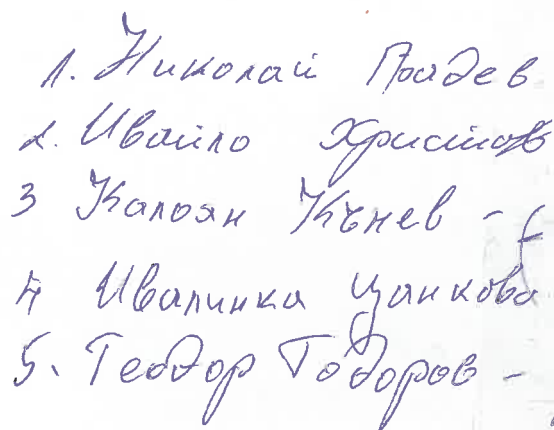 1. Николай Пладев
2. Ивайло Христов
3 Калоян Кънев -
4 Ивалинка Цанкова
5. Теодор Тодоров -